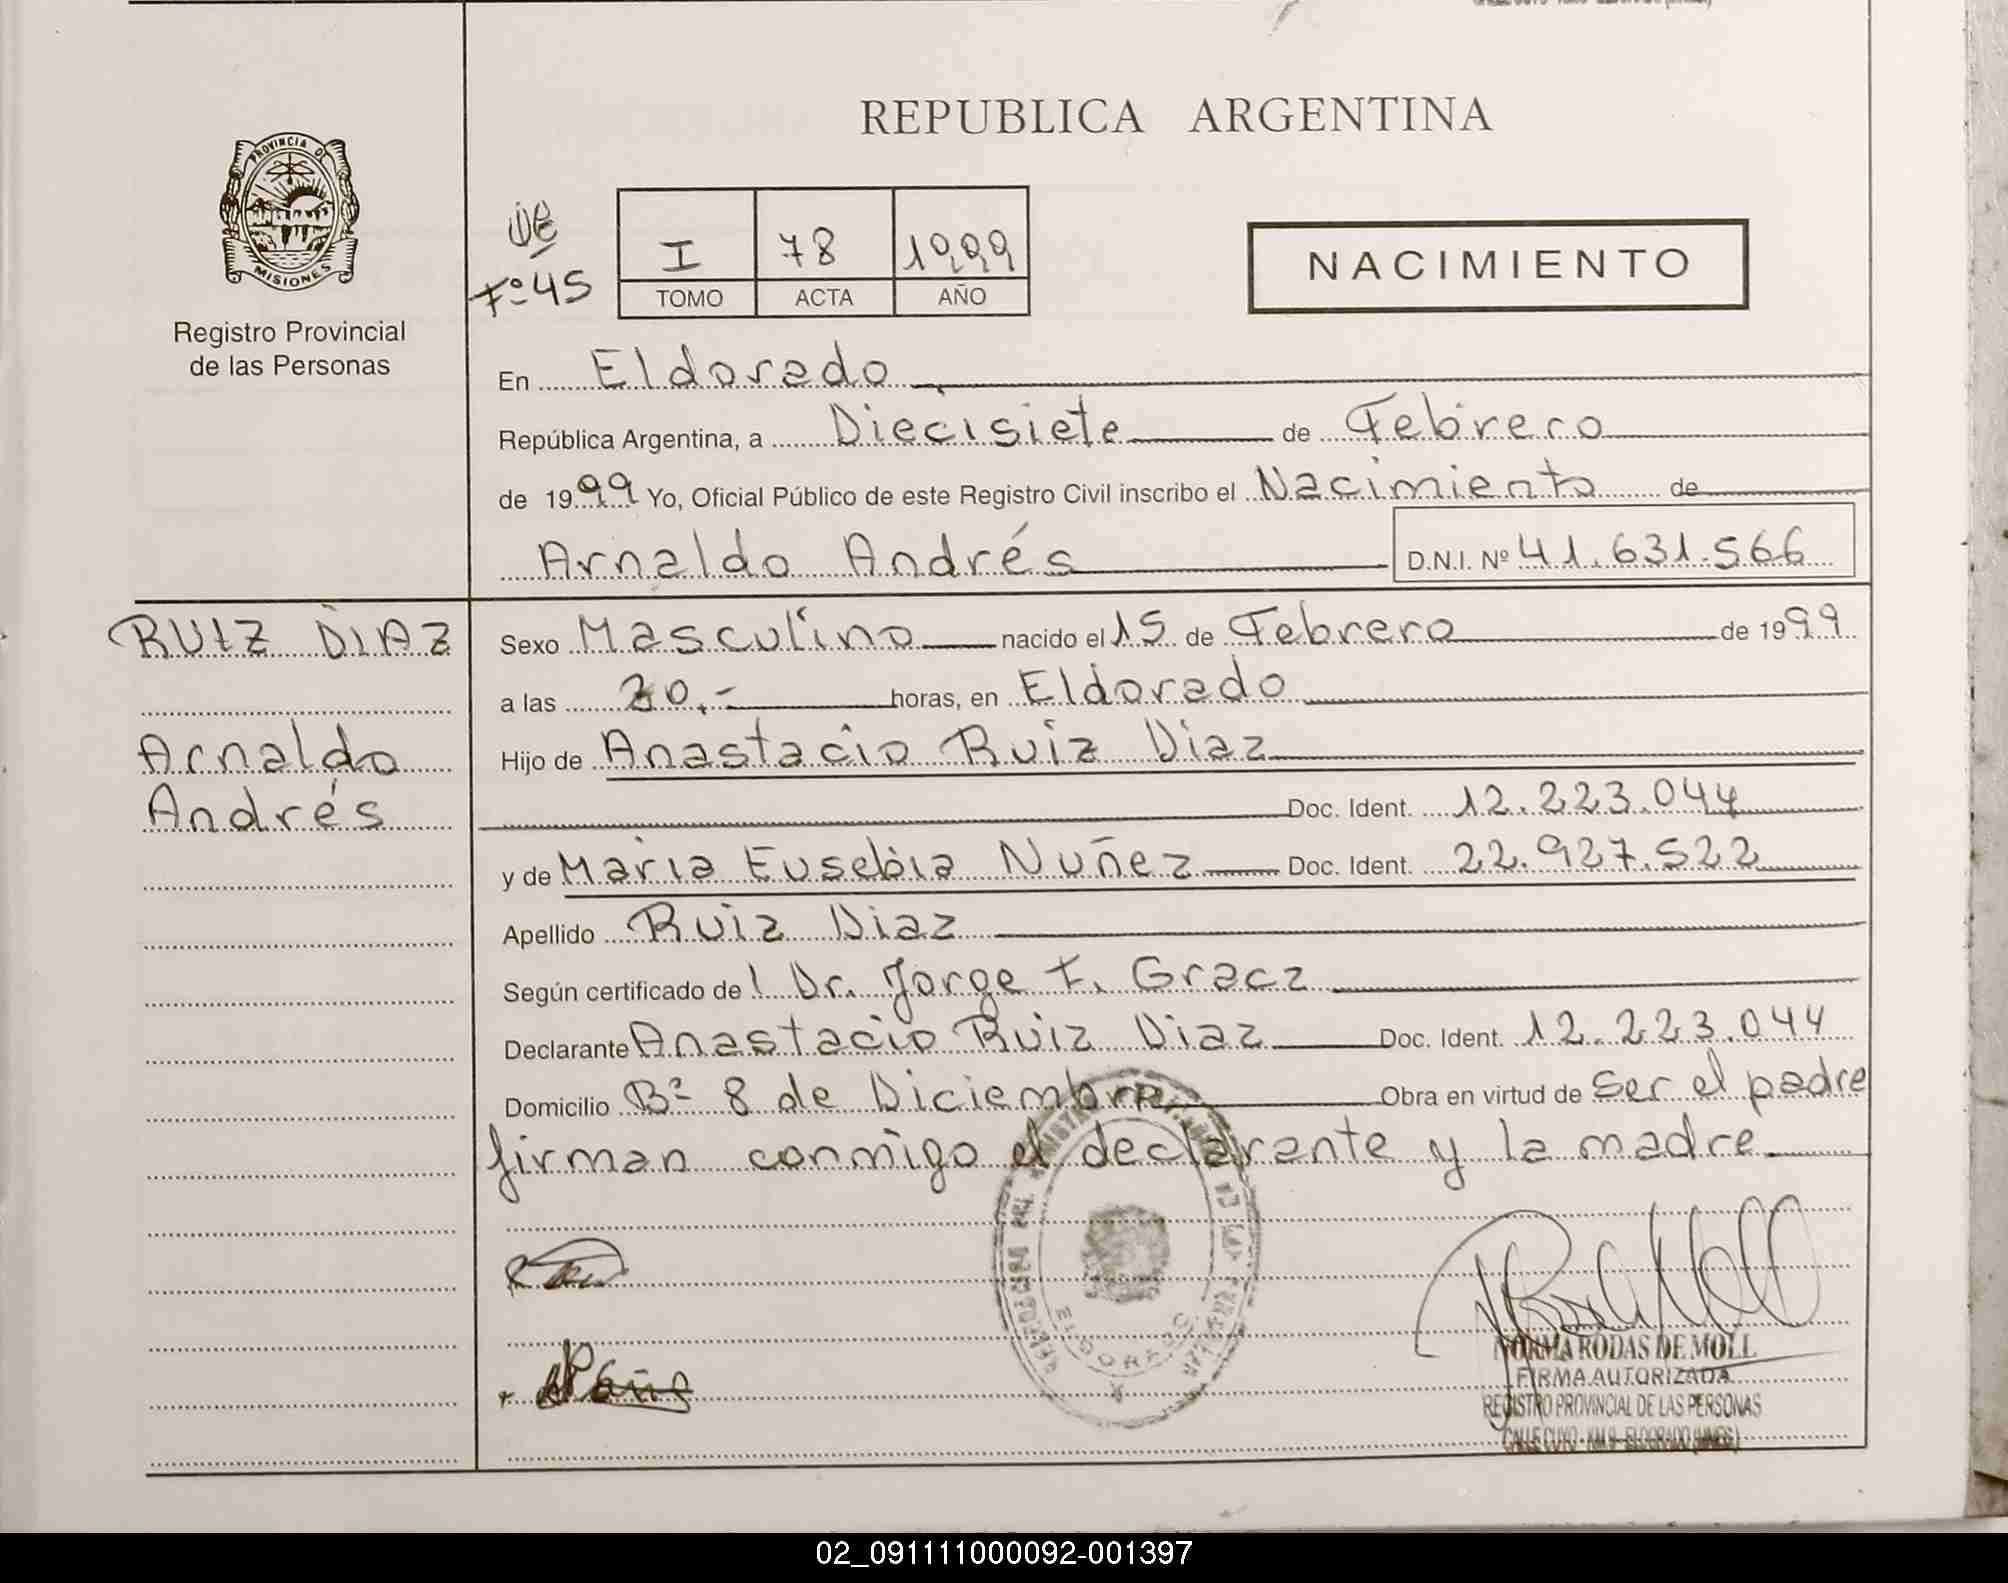 REPUBLICA ARGENTINA
PROVINCIA DE
MISIONES
Registro Provincial
de las Personas
Fº 45
I 78 1999
TOMO ACTA AÑO
NACIMIENTO
En Eldorado
República Argentina, a Diecisiete de Febrero
de 1999 Yo, Oficial Público de este Registro Civil inscribo el Nacimiento de
Arnaldo Andrés D.N.I. Nº 41.631.566
RUIZ DIAZ
Arnaldo
Andrés
Sexo Masculino nacido el 15 de Febrero de 1999
a las 20.- horas, en Eldorado
Hijo de Anastacio Ruiz Diaz
Doc. Ident. 12.223.044
y de Maria Eusebia Nuñez Doc. Ident. 22.927.522
Apellido Ruiz Diaz
Según certificado de l Dr. Jorge F. Gracz
Declarante Anastacio Ruiz Diaz Doc. Ident. 12.223.044
Domicilio Bº 8 de Diciembre Obra en virtud de ser el padre
firman conmigo el declarante y la madre
ELDORADO
NORMA RODAS DE MOLL
FIRMA AUTORIZADA
REGISTRO PROVINCIAL DE LAS PERSONAS
CALLE CUYO - KM 9 - ELDORADO (MNES)
02_091111000092-001397